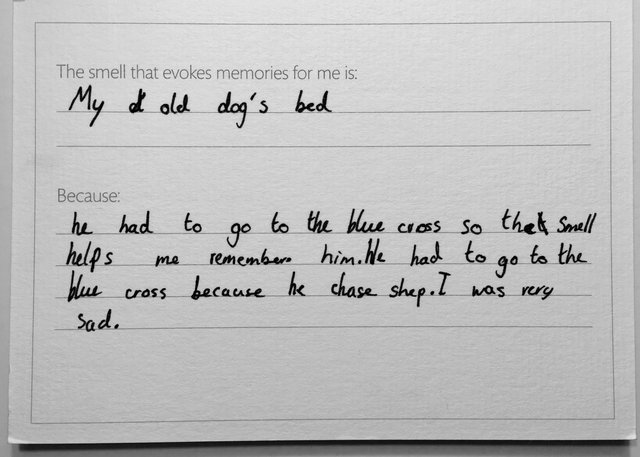 The smell that evokes memories for me is:
My old dog's bed
Because:
he had to go to the blue cross so that smell
helps me remember him. He had to go to the
blue cross because he chase shep. I was very
sad.